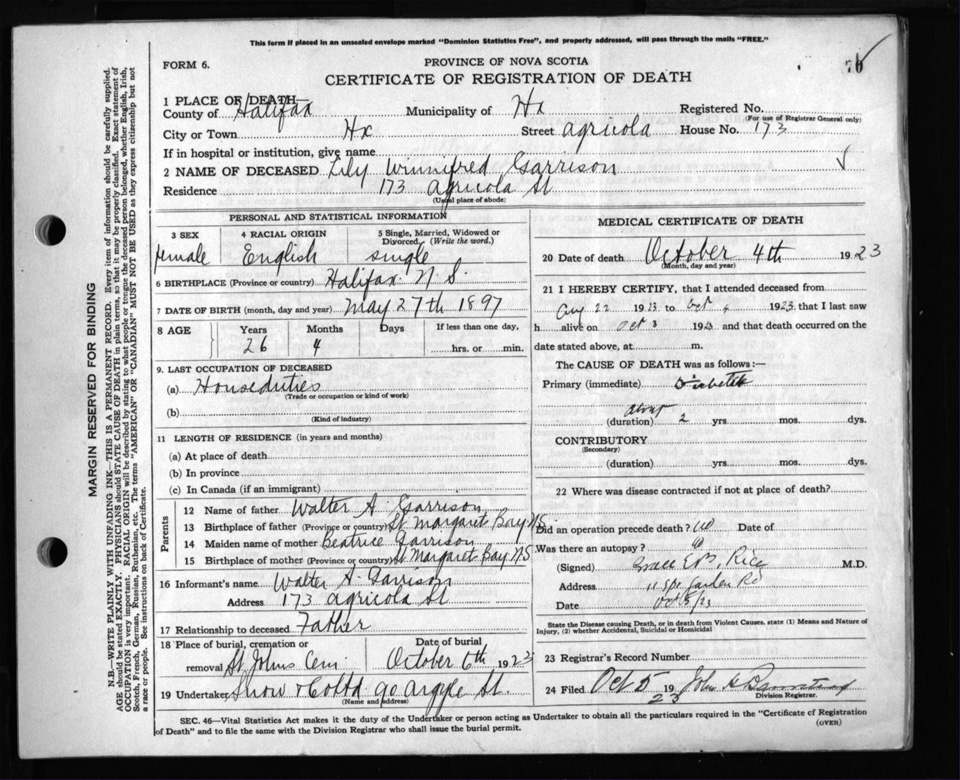 This form if placed in an unsealed envelope marked "Dominion Statistics Free", and properly addressed, will pass through the mails "FREE."
FORM 6.
PROVINCE OF NOVA SCOTIA
CERTIFICATE OF REGISTRATION OF DEATH
1 PLACE OF DEATH
County of Halifax Municipality of Hx Registered No.
(For use of Registrar General only)
City or Town Hx Street agricola House No. 173
If in hospital or institution, give name
2 NAME OF DECEASED Lily Winnifred Garrison
Residence 173 agricola St
(Usual place of abode)
PERSONAL AND STATISTICAL INFORMATION
3 SEX 4 RACIAL ORIGIN 5 Single, Married, Widowed or Divorced. (Write the word.)
female English single
6 BIRTHPLACE (Province or country) Halifax N.S.
7 DATE OF BIRTH (month, day and year) May 27th 1897
8 AGE Years Months Days If less than one day,
26 4 hrs. or min.
9. LAST OCCUPATION OF DECEASED
(a) Houseduties
(Trade or occupation or kind of work)
(b)
(Kind of industry)
11 LENGTH OF RESIDENCE (in years and months)
(a) At place of death
(b) In province
(c) In Canada (if an immigrant)
Parents
12 Name of father Walter A. Garrison
13 Birthplace of father (Province or country) St Margaret Bay N.S.
14 Maiden name of mother Beatrice Garrison
15 Birthplace of mother (Province or country) St Margaret Bay N.S.
16 Informant's name Walter A. Garrison
Address 173 agricola St
17 Relationship to deceased Father
18 Place of burial, cremation or removal St Johns Cem Date of burial October 6th 1923
19 Undertaker Snow & Co Ltd 90 Argyle St.
(Name and address)
MEDICAL CERTIFICATE OF DEATH
20 Date of death October 4th 1923
(Month, day and year)
21 I HEREBY CERTIFY, that I attended deceased from
Aug 22 1923 to Oct 1923 that I last saw
h alive on Oct 3 1923 and that death occurred on the
date stated above, at m.
The CAUSE OF DEATH was as follows:—
Primary (immediate)
about
(duration) 2 yrs. mos. dys.
CONTRIBUTORY
(Secondary)
(duration) yrs. mos. dys.
22 Where was disease contracted if not at place of death?
Did an operation precede death? Date of
Was there an autopsy?
(Signed) Grace Rice M.D.
Address Garden Rd
Date Oct 5/23
State the Disease causing Death, or in death from Violent Causes, state (1) Means and Nature of
Injury, (2) whether Accidental, Suicidal or Homicidal
23 Registrar's Record Number
24 Filed Oct 5 1923 John
Division Registrar.
SEC. 46—Vital Statistics Act makes it the duty of the Undertaker or person acting as Undertaker to obtain all the particulars required in the "Certificate of Registration
of Death" and to file the same with the Division Registrar who shall issue the burial permit.
(OVER)
MARGIN RESERVED FOR BINDING
N.B.—WRITE PLAINLY WITH UNFADING INK—THIS IS A PERMANENT RECORD. Every item of information should be carefully supplied.
AGE should be stated EXACTLY. PHYSICIANS should STATE CAUSE OF DEATH in plain terms, so that it may be properly classified. Exact statement of
OCCUPATION is very important. RACIAL ORIGIN will be described by stating to what people or tongue the deceased person belonged, whether English, Irish,
Scotch, French, German, Russian, Ruthenian, etc. The terms "AMERICAN" OR "CANADIAN" MUST NOT BE USED as they express citizenship but not
a race or people. See instructions on back of Certificate.